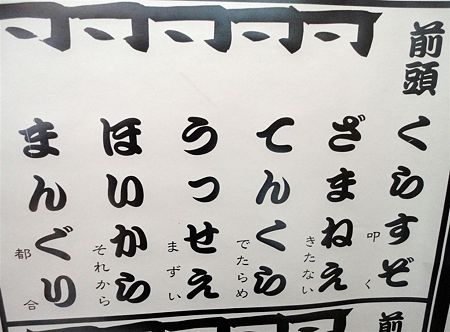 前頭
くらすぞ
叩く
ざまねえ
きたない
てんくら
でたらめ
うっせえ
まずい
ほいから
それから
まんぐり
都合
前